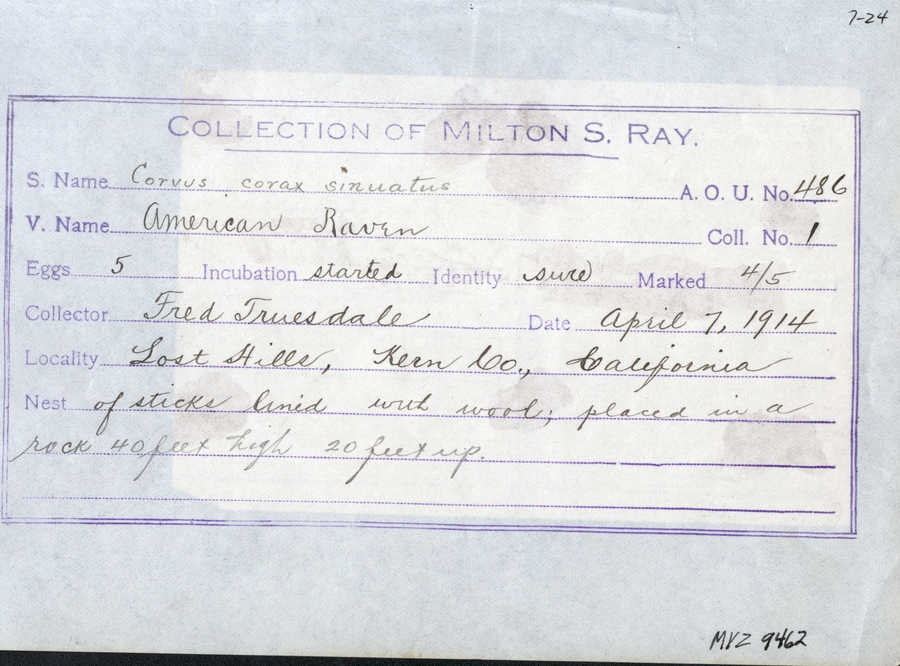 7-24
COLLECTION OF MILTON S. RAY.
S. Name Corvus corax sinuatus A. O. U. No. 486
V. Name American Raven Coll. No. 1
Eggs 5 Incubation started Identity sure Marked 4/5
Collector Fred Truesdale Date April 7, 1914
Locality Lost Hills, Kern Co., California
Nest of sticks lined with wool; placed in a
rock 40 feet high 20 feet up.
MVZ 9462